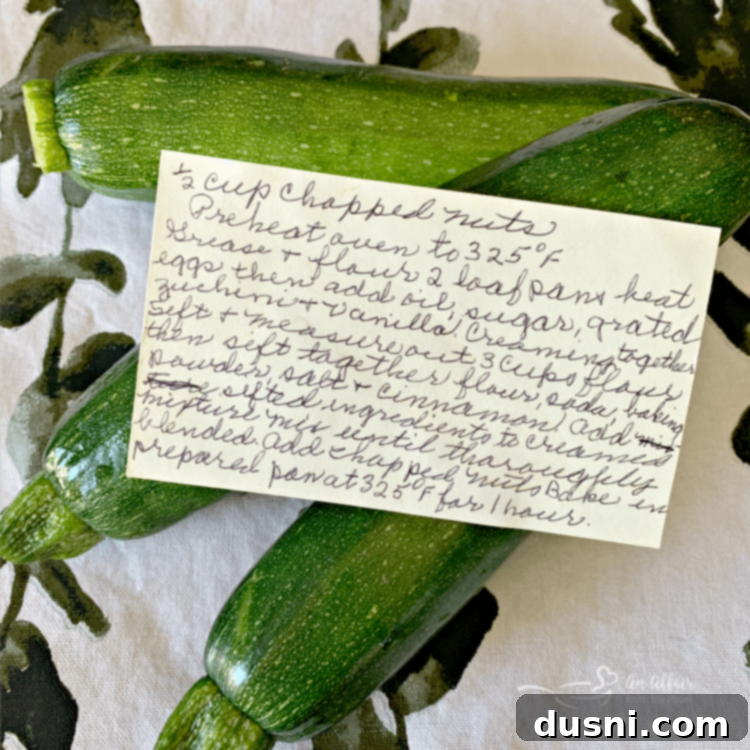 ½ cup chopped nuts
Preheat oven to 325°F
Grease + flour 2 loaf pans heat
eggs then add oil, sugar, grated
zuchini + vanilla Creaming together
Sift + measure out 3 cups flour
then sift together flour, soda, baking
powder, salt + cinnamon add
sifted ingredients to creamed
mixture mix until thoroughly
blended add chopped nuts Bake in
prepared pan at 325°F for 1 hour.
An Affair
dusni.com